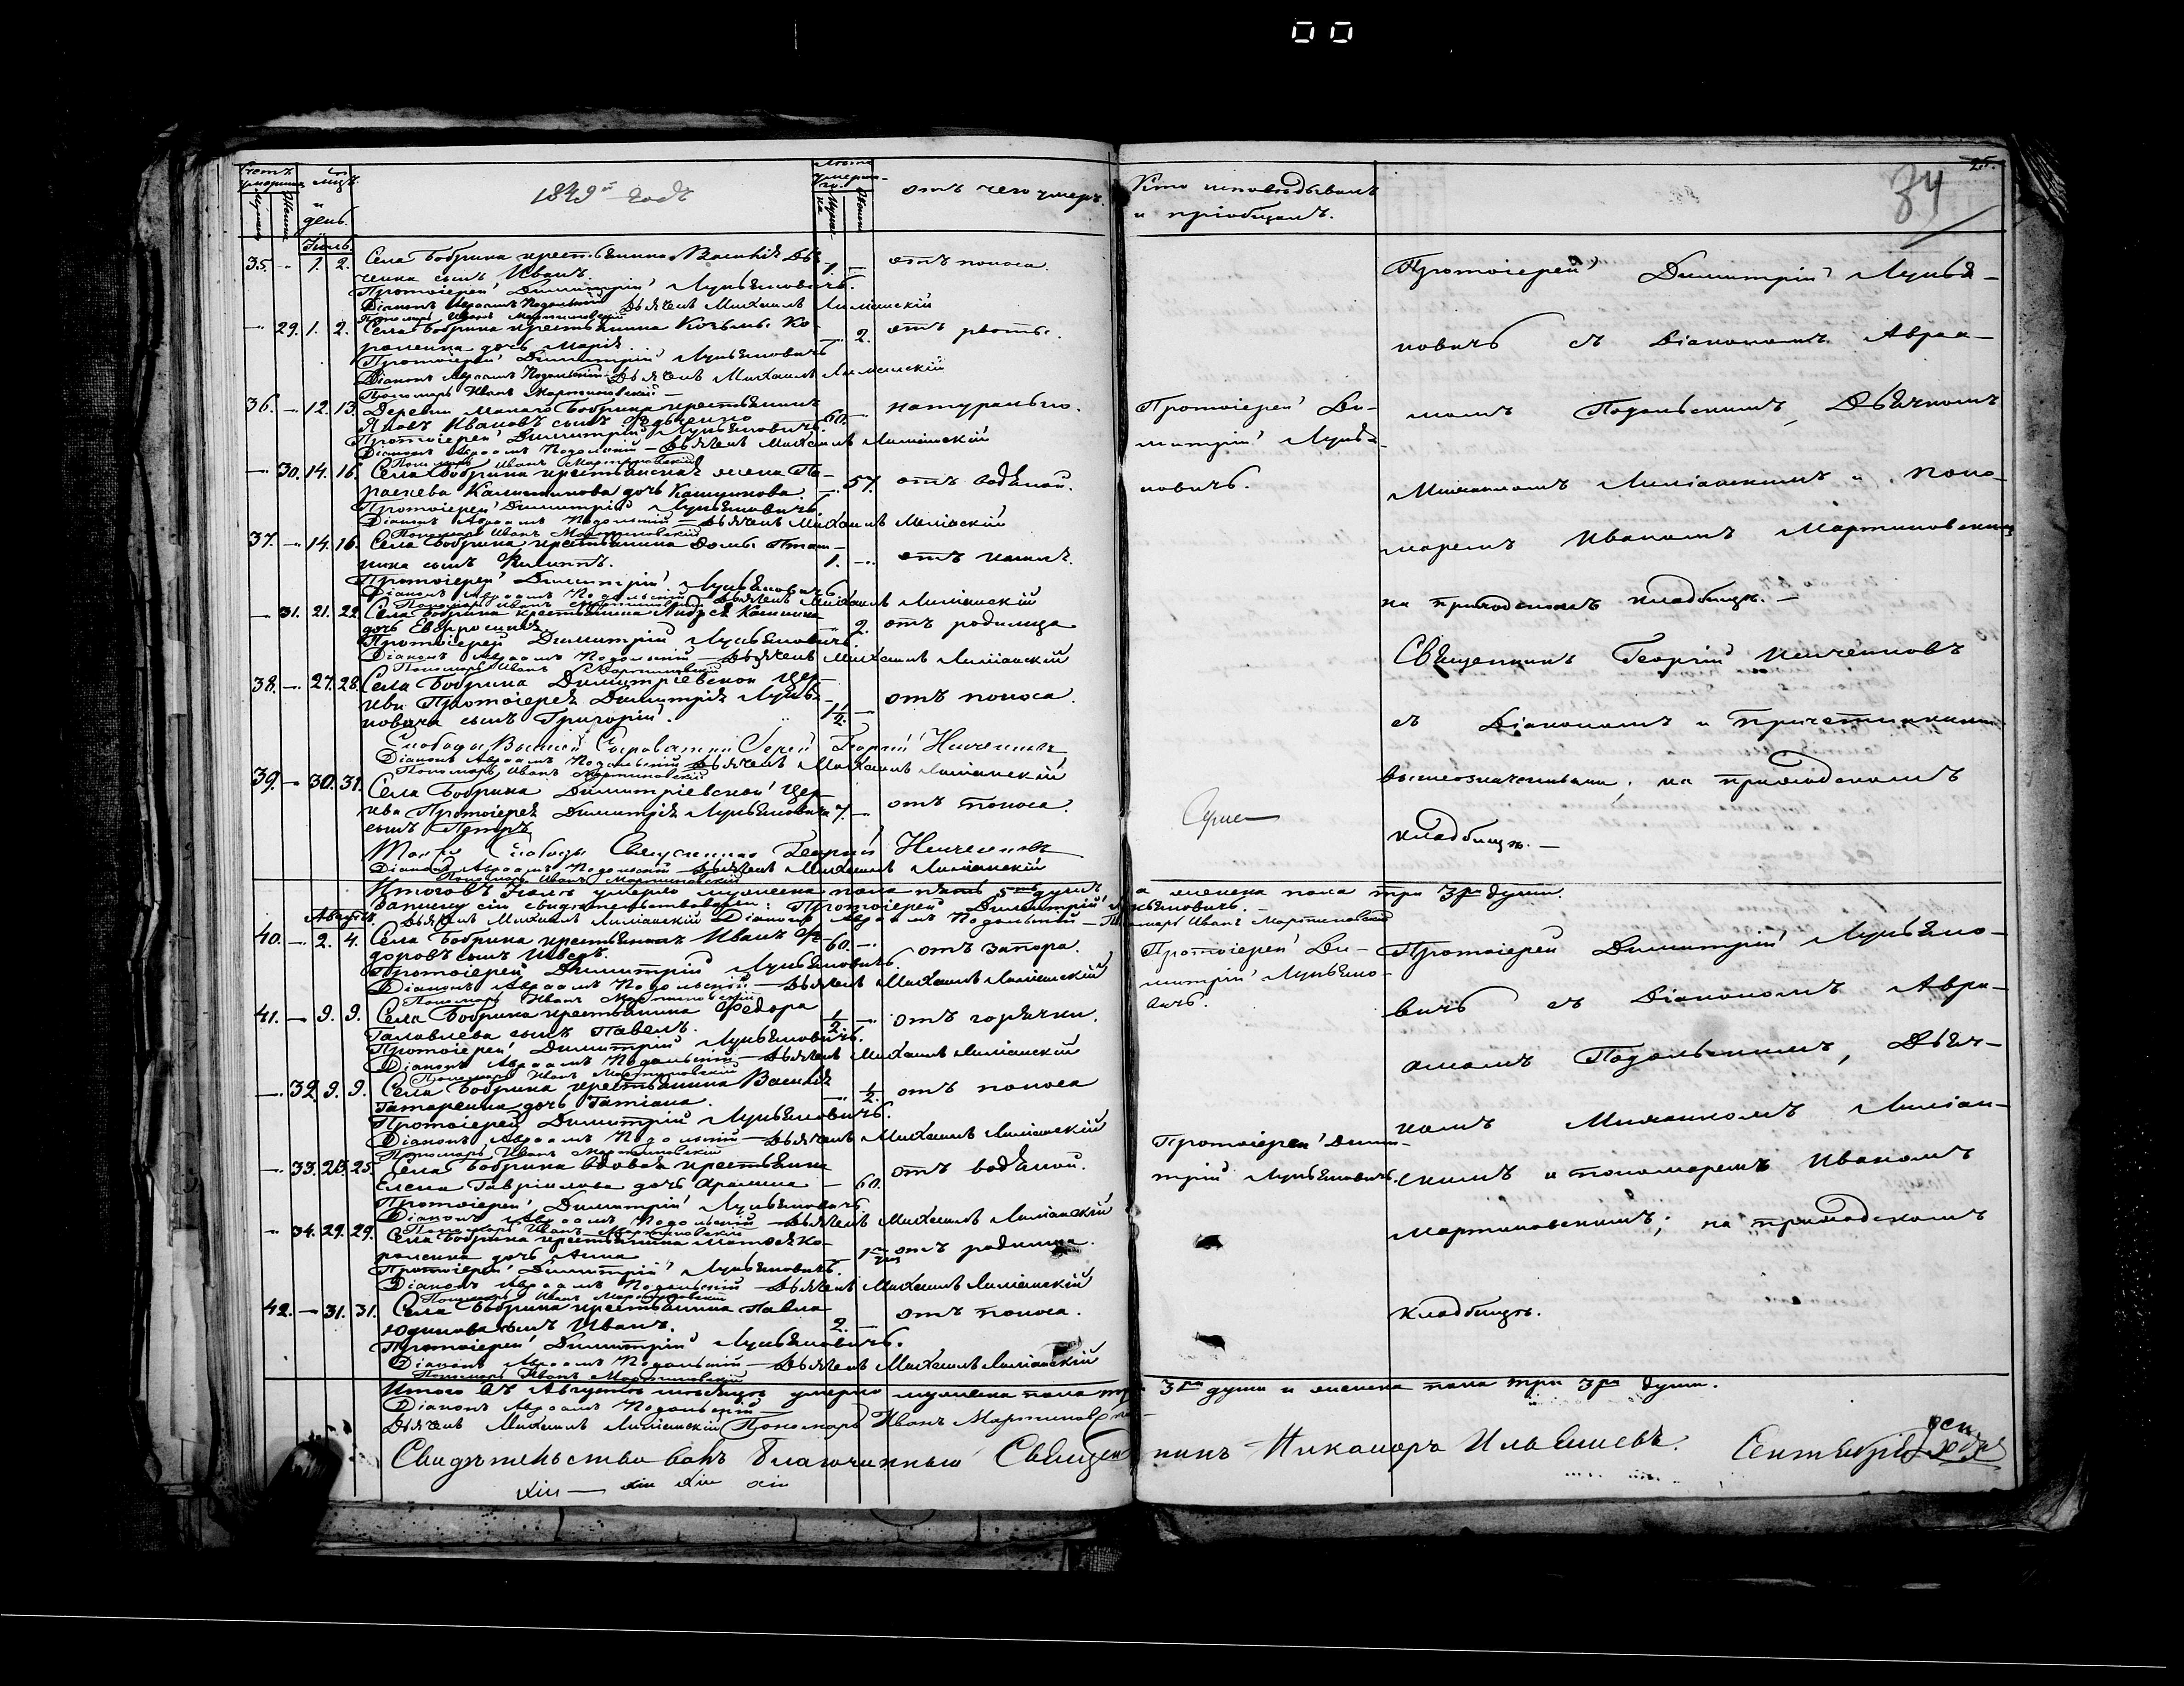 Счетъ умершихъ
М-цъ и день.
1849й годъ
Лѣта умершаго.
отъ чего умеръ.
Кто исповѣдывалъ
и пріобщалъ.
34
25.
Мужска
Женска
Мужска
Женска
Іюль.
35. — 1. 2. Села Бобрика крестьянина Василія
сынъ Иванъ. 1. — отъ поноса.
Протоіерей Димитрій Лукьяновичъ.
Діаконъ Авраамъ Подольскій Дьячекъ Михаилъ Лиліанскій
Пономарь Иванъ Мартиновскій
— 29. 1. 2. Села Бобрика крестьянина Козьмы Ко-
роленка дочь Марія. — 2. отъ рвоты.
Протоіерей Димитрій Лукьяновичъ
Діаконъ Авраамъ Подольскій Дьячекъ Михаилъ Лиліанскій
Пономарь Иванъ Мартиновскій
36. — 12. 13. Деревни Малаго Бобрика крестьянинъ
Яковъ Ивановъ сынъ 60. — натурально.
Протоіерей Димитрій Лукьяновичъ.
Діаконъ Авраамъ Подольскій — Дьячекъ Михаилъ Лиліанскій
Пономарь Иванъ Мартиновскій
— 30. 14. 16. Села Бобрика крестьянская жена Па-
раскева дочь — 57. отъ водяной.
Протоіерей Димитрій Лукьяновичъ
Діаконъ Авраамъ Подольскій — Дьячекъ Михаилъ Лиліанскій
Пономарь Иванъ Мартиновскій
37. — 14. 16. Села Бобрика крестьянина
сынъ Филиппъ. 1. — отъ кашля.
Протоіерей Димитрій Лукьяновичъ
Діаконъ Авраамъ Подольскій Дьячекъ Михаилъ Лиліанскій
Пономарь Иванъ Мартиновскій
— 31. 21. 22. Села Бобрика крестьянина Андрея
дочь Евфросинія — 2. отъ родимца
Протоіерей Димитрій Лукьяновичъ
Діаконъ Авраамъ Подольскій — Дьячекъ Михаилъ Лиліанскій
Пономарь Иванъ Мартиновскій
38. — 27. 28. Села Бобрика Димитріевской цер-
кви Протоіерея Димитрія Лукья-
новича сынъ Григорій. 1½ — отъ поноса.
Слободы Высшей Сыроватки Іерей Георгій
Діаконъ Авраамъ Подольскій Дьячекъ Михаилъ Лиліанскій
Пономарь Иванъ Мартиновскій
39. — 30. 31. Села Бобрика Димитріевской цер-
кви Протоіерея Димитрія Лукьяновича 7. — отъ поноса.
сынъ Петръ
Той же слободы Священникъ Георгій
Діаконъ Авраамъ Подольскій Дьячекъ Михаилъ Лиліанскій
Пономарь Иванъ Мартиновскій
Итого въ Іюлѣ умерло мужеска пола пять 5ть душъ, а женска пола три 3ри души.
Запись сію свидѣтельствовали: Протоіерей Димитрій Лукьяновичъ. —
Дьячекъ Михаилъ Лиліанскій Діаконъ Авраамъ Подольскій — Пономарь Иванъ Мартиновскій
Августъ.
40. — 2. 4. Села Бобрика крестьянинъ Иванъ Фе-
доровъ сынъ 60. — отъ запора.
Протоіерей Димитрій Лукьяновичъ.
Діаконъ Авраамъ Подольскій — Дьячекъ Михаилъ Лиліанскій
Пономарь Иванъ Мартиновскій
41. — 9. 9. Села Бобрика крестьянина Федора
сынъ Павелъ. ½ — отъ горячки.
Протоіерей Димитрій Лукьяновичъ.
Діаконъ Авраамъ Подольскій — Дьячекъ Михаилъ Лиліанскій
Пономарь Иванъ Мартиновскій
— 32. 9. 9. Села Бобрика крестьянина Василія
Татаренка дочь Татіана. — ½. отъ поноса
Протоіерей Димитрій Лукьяновичъ.
Діаконъ Авраамъ Подольскій — Дьячекъ Михаилъ Лиліанскій
Пономарь Иванъ Мартиновскій
— 33. 23. 25. Села Бобрика вдовая крестьянка
Елена Гавріилова дочь — 60. отъ водяной.
Протоіерей Димитрій Лукьяновичъ
Діаконъ Авраамъ Подольскій — Дьячекъ Михаилъ Лиліанскій
Пономарь Иванъ Мартиновскій
— 34. 29. 29. Села Бобрика крестьянина Матѳея Ко-
роленка дочь Анна отъ родимца.
Протоіерей Димитрій Лукьяновичъ.
Діаконъ Авраамъ Подольскій Дьячекъ Михаилъ Лиліанскій
Пономарь Иванъ Мартиновскій
42. — 31. 31. Села Бобрика крестьянина Павла
сынъ Иванъ. 2. — отъ поноса.
Протоіерей Димитрій Лукьяновичъ.
Діаконъ Авраамъ Подольскій — Дьячекъ Михаилъ Лиліанскій
Пономарь Иванъ Мартиновскій
Итого въ Августѣ мѣсяцѣ умерло мужеска пола три 3ри души и женска пола три 3ри души.
Діаконъ Авраамъ Подольскій —
Дьячекъ Михаилъ Лиліанскій Пономарь Иванъ Мартиновскій
Свидѣтельствовалъ Благочинный Священникъ Никаноръ Сентября
Протоіерей Ди-
митрій Лукья-
новичъ.
Протоіерей Ди-
митрій Лукьяно-
вичъ.
Протоіерей Дими-
трій Лукьяновичъ.
Протоіерей Димитрій Лукья-
новичъ съ Діакономъ Авраа-
момъ Подольскимъ, Дьячкомъ
Михаиломъ Лиліанскимъ и Поно-
маремъ Иваномъ Мартиновскимъ
на приходскомъ кладбищѣ. —
Священникъ Георгій
съ Діакономъ и причетниками
вышеозначенными, на приходскомъ
кладбищѣ. —
Протоіерей Димитрій Лукьяно-
вичъ съ Діакономъ Авра-
амомъ Подольскимъ, Дьяч-
комъ Михаиломъ Лиліан-
скимъ и пономаремъ Иваномъ
Мартиновскимъ; на приходскомъ
кладбищѣ.